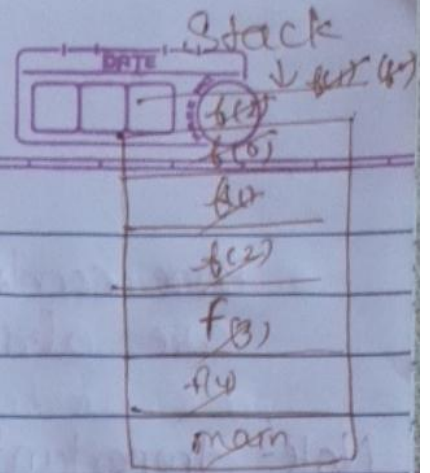 Stack
DATE
f(0)
f(1)
f(2)
f(3)
f(4)
main